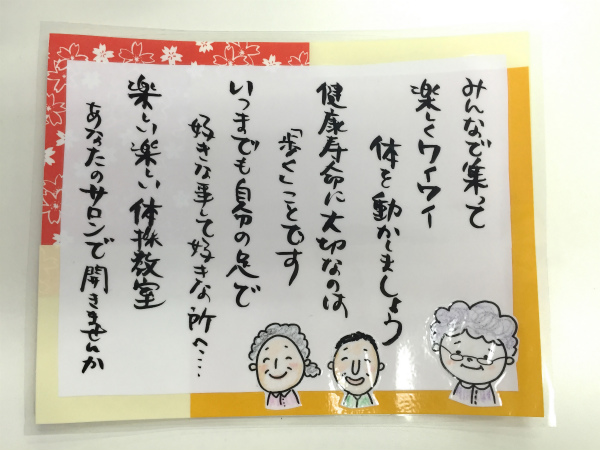 みんなで集って
楽しくワイワイ
体を動かしましょう
健康寿命に大切なのは
「歩く」ことです
いつまでも自分の足で
好きな事して好きな所へ‥‥
楽しい楽しい体操教室
あなたのサロンで開きませんか